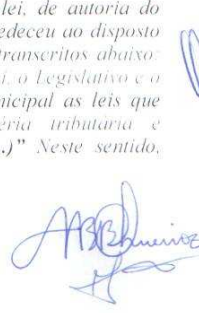 lei, de autoria do
edeceu ao disposto
transcritos abaixo:
i, o Legislativo e o
nicipal as leis que
éria tributária e
.)" Neste sentido,